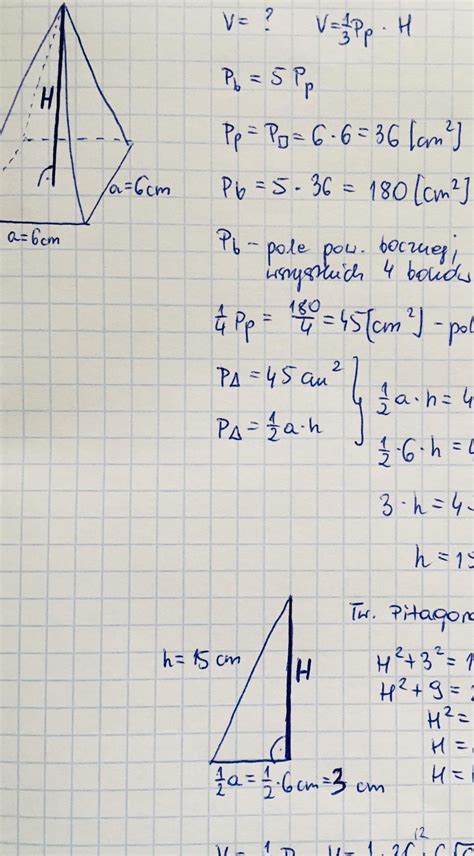 V = ? V = 1/3 Pp · H
H
Pb = 5 Pp
Pp = P□ = 6 · 6 = 36 [cm²]
a = 6cm
Pb = 5 · 36 = 180 [cm²]
a = 6cm
Pb - pole pow. bocznej,
wszystkich 4 boków
1/4 Pp = 180/4 = 45 [cm²] - pol
PΔ = 45 cm²
PΔ = 1/2 a · h
1/2 a · h = 4
1/2 · 6 · h =
3 · h = 4
h = 15
Tw. Pitagora
h = 15 cm
H
H² + 3² = 1
H² + 9 = 2
H² =
H =
H =
1/2 a = 1/2 · 6cm = 3 cm
12